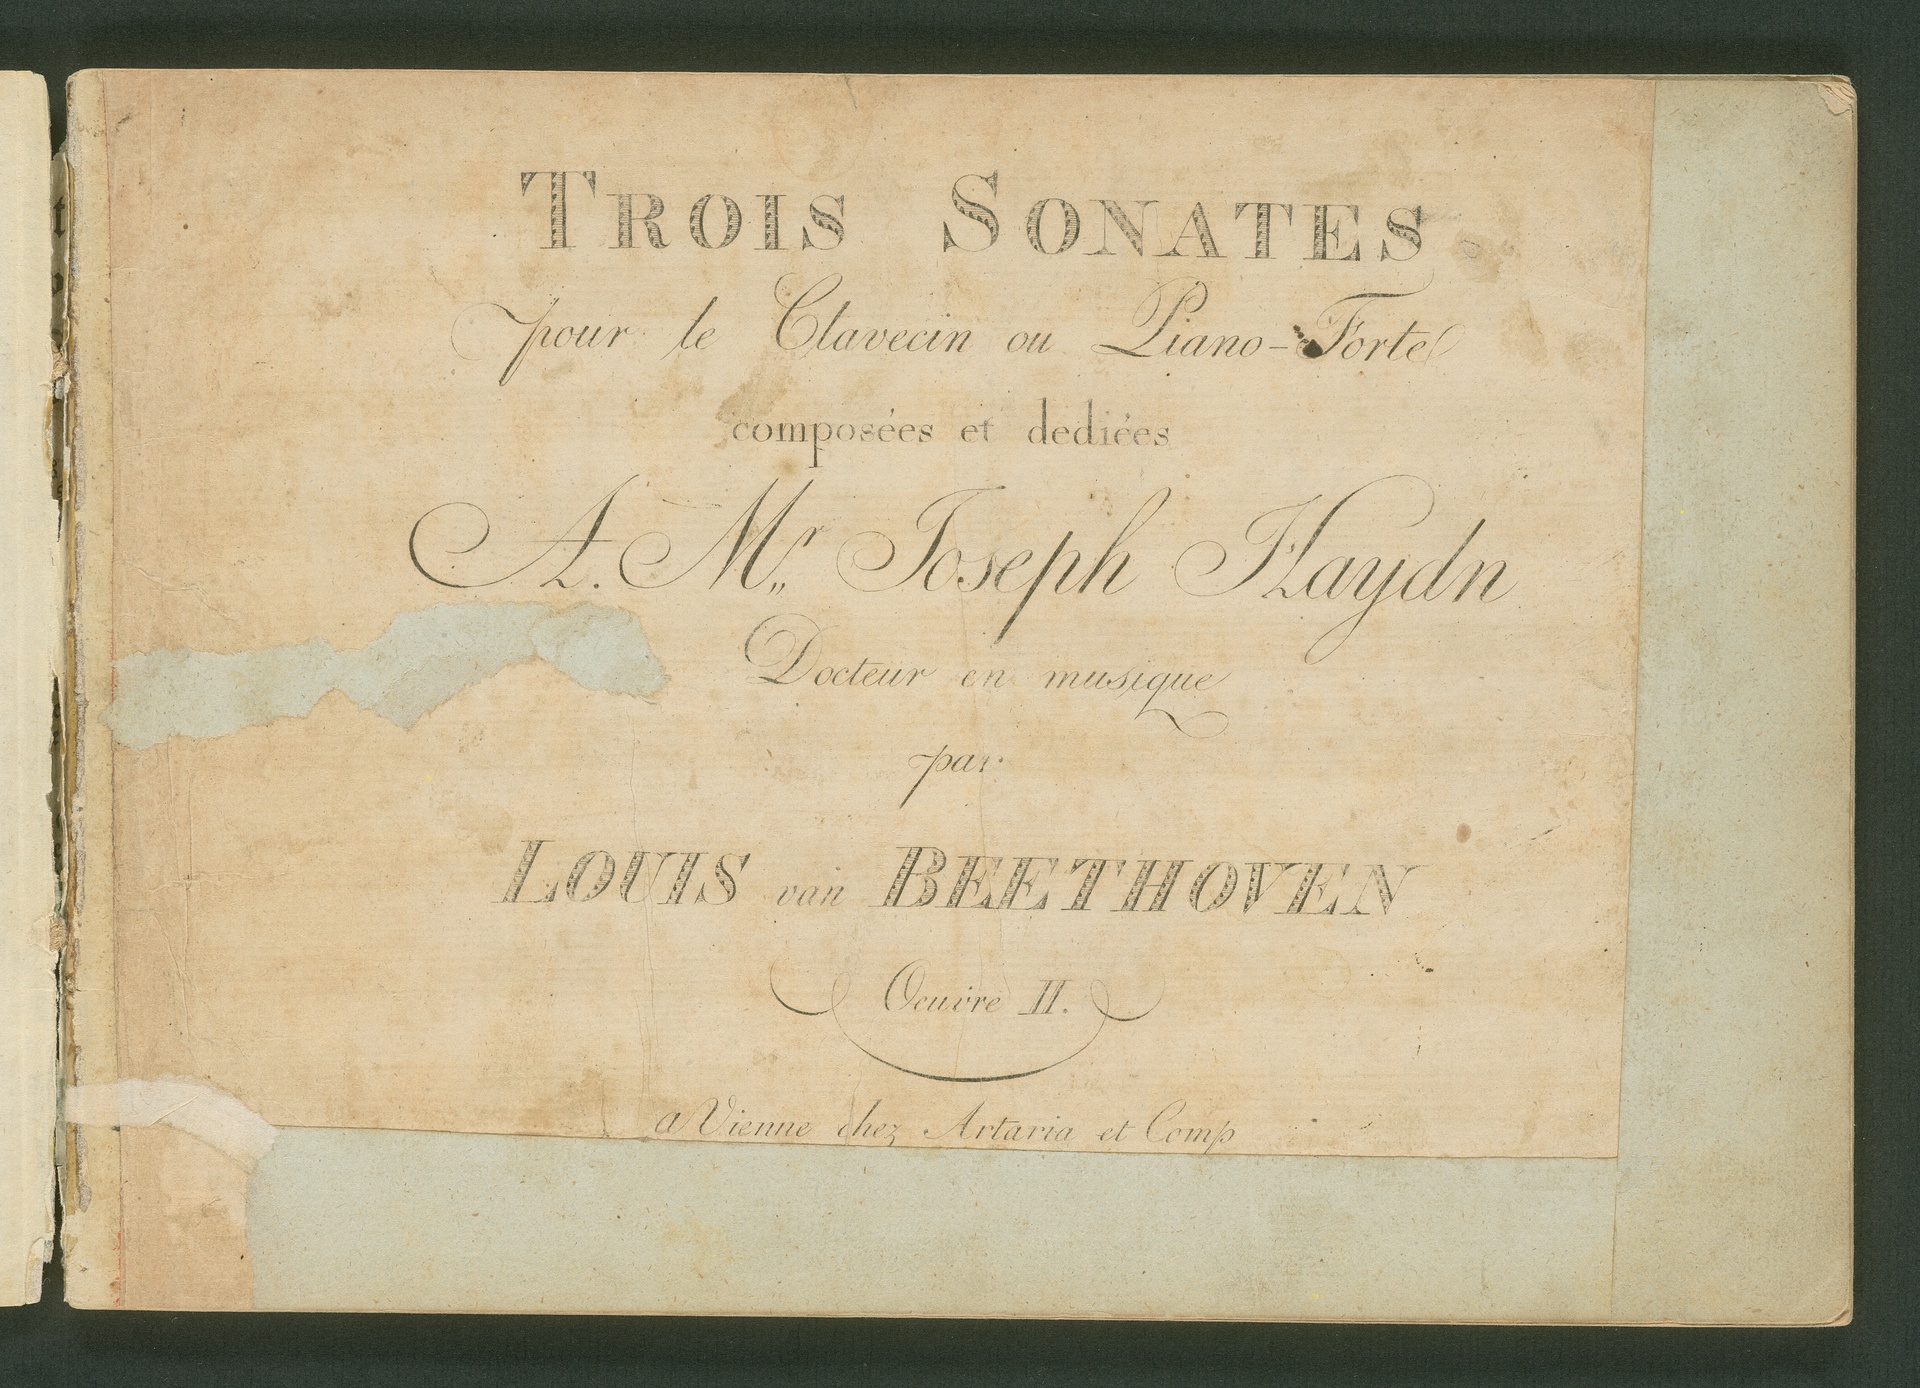 TROIS SONATES
pour le Clavecin ou Piano-Forte
composées et dediées
A. Mr„ Joseph Haydn
Docteur en musique
par
LOUIS van BEETHOVEN
Oeuvre II.
a Vienne chez Artaria et Comp